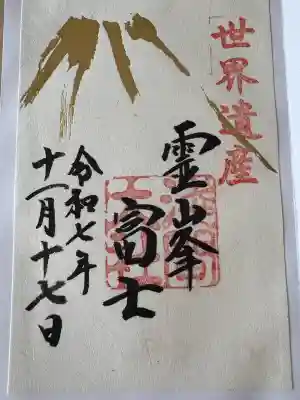 世界遺産
霊峯
冨士
令和七年
十一月十七日